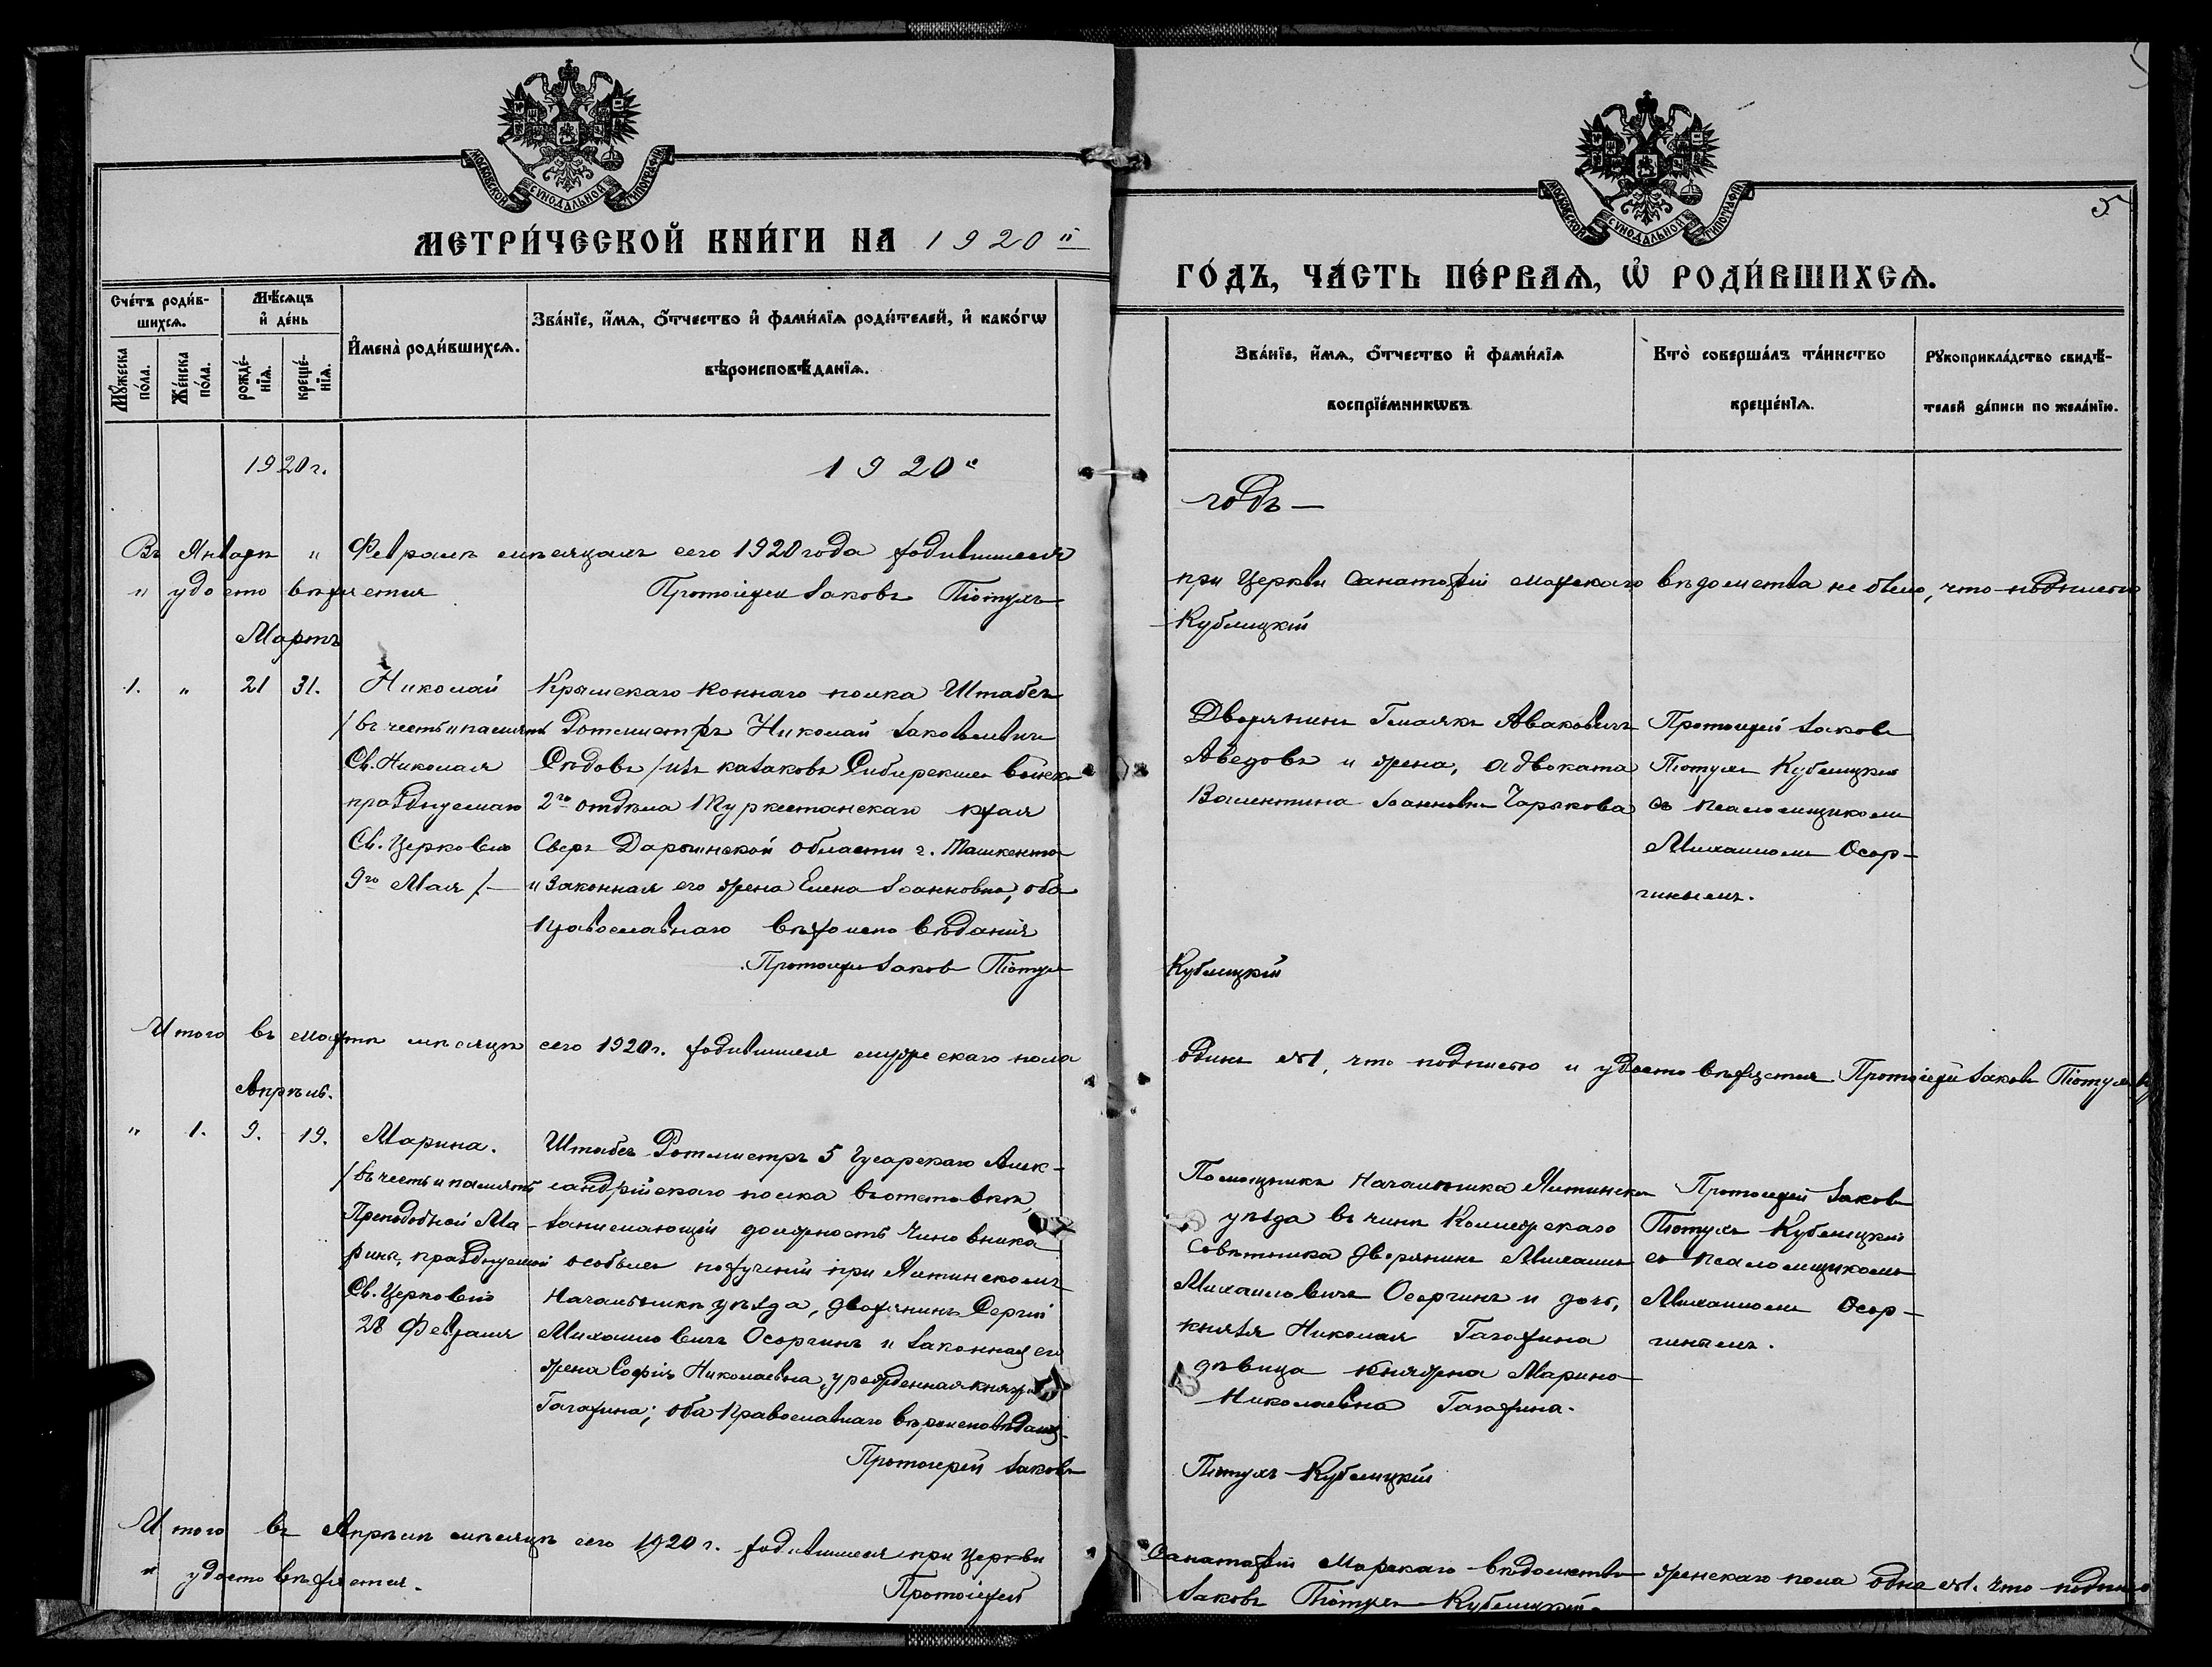 МОСКОВСКОЙ СѴНОДАЛЬНОЙ ТИПОГРАФІИ
МЕТРИ́ЧЕСКОЙ КНИ́ГИ НА 1920й
Сче́тъ роди́в-
шихсѧ.
Мѣ́сѧцъ
и҆ де́нь
Мꙋ́жеска
по́ла.
Же́нска
по́ла.
рожде́-
нїѧ.
креще́-
нїѧ.
И҆мена̀ роди́вшихсѧ.
Зва́нїе, и҆́мѧ, ѻ҆́тчество и҆ фами́лїѧ роди́телей, и҆ како́гѡ
вѣроисповѣ́данїѧ.
1920г.
1920й
Въ Январѣ и Февралѣ мѣсяцахъ сего 1920 года родившихся
и удостовѣряется Протоіерей Іаковъ Пѣтухъ
Мартъ
1. " 21 31.
Николай
/въ честь и память
Св. Николая
празднуемаго
Св. Церковью
9го Мая/-
Крымскаго Коннаго полка Штабсъ
Ротмистръ Николай Іаковлевичъ
Сѣдовъ /изъ казаковъ Сибирскаго войска
2го отдѣла Туркестанскаго края
Сыръ Дарьинской области г. Ташкента
и законная его жена Елена Іоанновна, оба
Православнаго вѣроисповѣданія
Протоіерей Іаковъ Пѣтухъ
Итого въ мартѣ мѣсяцѣ сего 1920г. родившихся мужескаго пола
Апрѣль.
" 1. 9. 19.
Марина.
/въ честь и память
Преподобной Ма-
рины, празднуемой
Св. Церковію
28 Февраля
Штабсъ Ротмистръ 5 Гусарскаго Алек-
сандрійскаго полка въ отставкѣ,
занимающій должность Чиновника
особыхъ порученій при Ялтинскомъ
Начальникѣ уѣзда, дворянинъ Сергій
Михаиловичъ Осоргинъ и законная его
жена Софія Николаевна, урожденная княжна
Гагарина; оба Православнаго вѣроисповѣданія
Протоіерей Іаковъ
Итого въ Апрѣлѣ мѣсяцѣ сего 1920г. родившихся при Церкви
и удостовѣряется. Протоіерей
5
МОСКОВСКОЙ СѴНОДАЛЬНОЙ ТИПОГРАФІИ
ГО́ДЪ, ЧА́СТЬ ПЕ́РВАѦ, Ѡ҆ РОДИ́ВШИХСѦ.
Зва́нїе, и҆́мѧ, ѻ҆́тчество и҆ фами́лїѧ
воспрїе́мникѡвъ
Кто̀ соверша́лъ та́инство
креще́нїѧ.
Рꙋкоприкла́дство свидѣ́-
телей за́писи по жела́нїю.
годъ—
при Церкви Санаторіи морскаго вѣдомства не было, что подписью
Кублицкій
Дворянинъ Аваковичъ
Аведовъ и жена, адвоката
Валентина Іоанновна Чарыкова
Протоіерей Іаковъ
Пѣтухъ Кублицкій
съ псаломщикомъ
Михаиломъ Осор-
гинымъ.
Кублицкій
одинъ №1, что подписью и удостовѣряется Протоіерей Іаковъ Пѣтухъ
Помощникъ Начальника Ялтинскаго
уѣзда въ чинѣ Коллежскаго
Совѣтника дворянинъ Михаилъ
Михаиловичъ Осоргинъ и дочь,
князя Николая Гагарина
дѣвица Княжна Марина
Николаевна Гагарина.
Протоіерей Іаковъ
Пѣтухъ Кублицкій
съ псаломщикомъ
Михаиломъ Осор-
гинымъ.
Пѣтухъ-Кублицкій
Санаторіи Морскаго вѣдомства женскаго пола одна №1. что подписью
Іаковъ Пѣтухъ-Кублицкій.